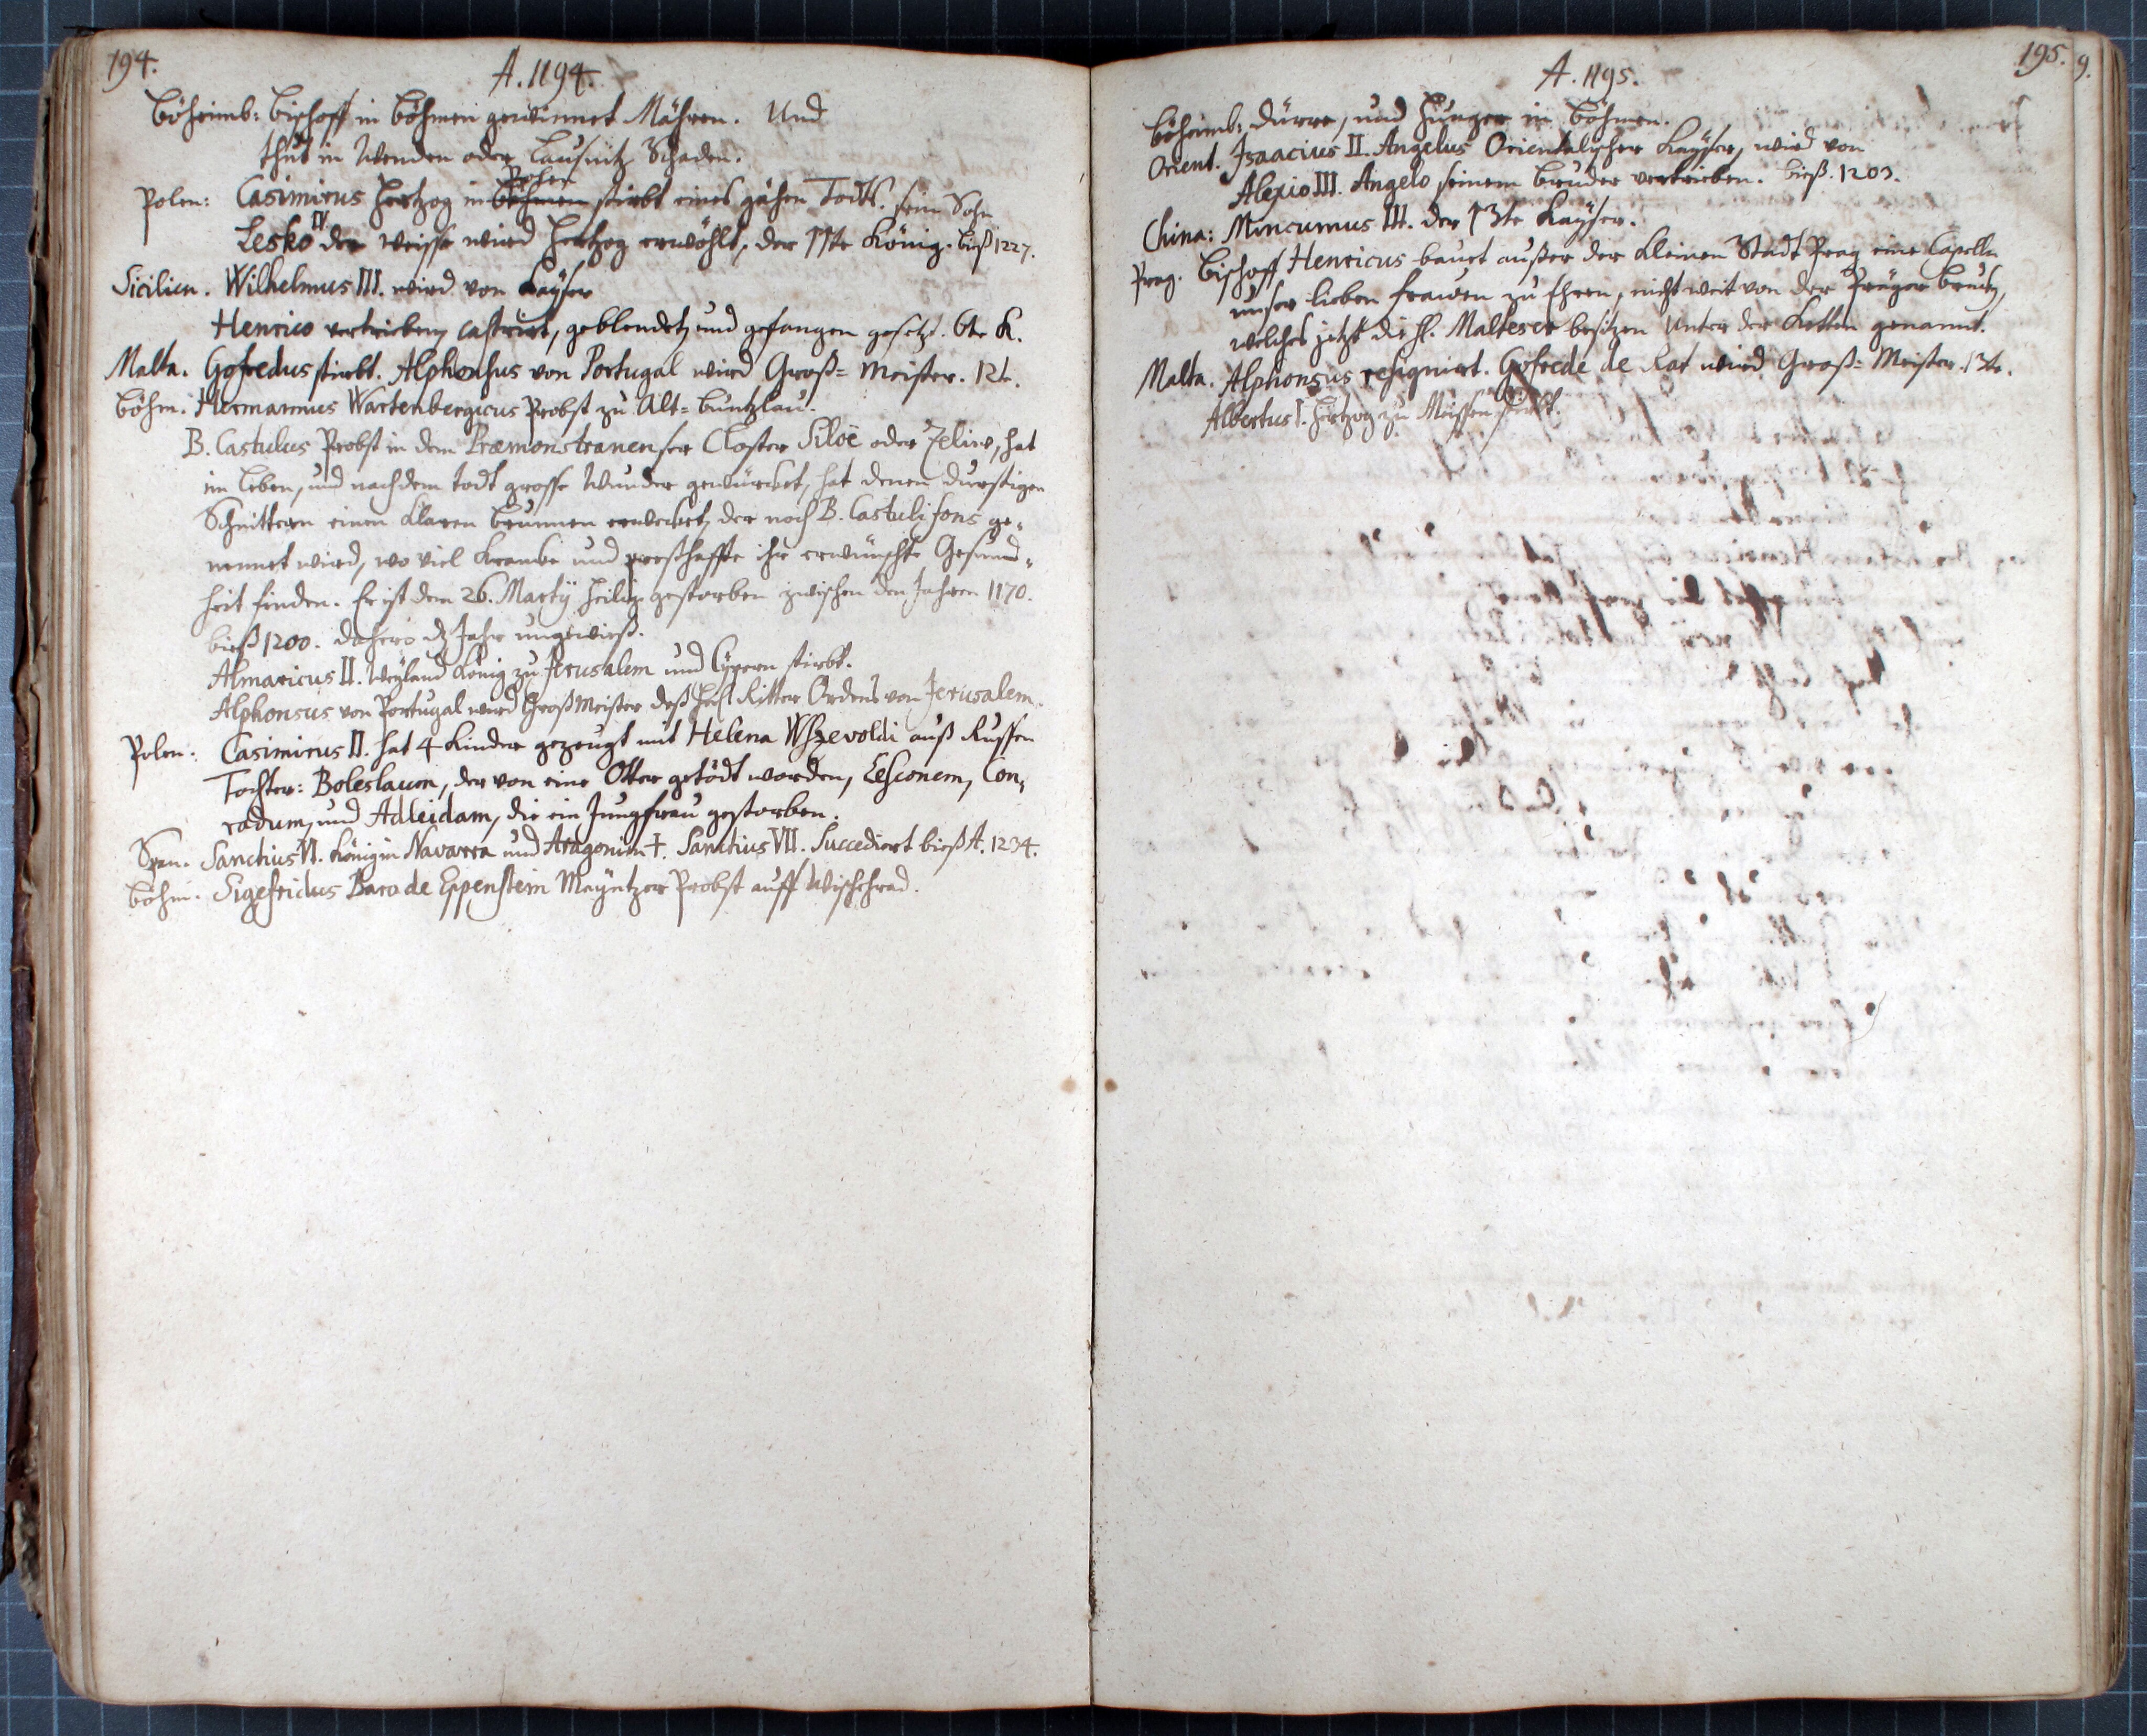 194.
A. 1194.
Böheimb: Bischoff in Böhmen gewinnet Mähren. Und
thut in Wenden oder Lausnitz Schaden.
Polen
Polen: Casimirus Hertzog in Böhmen stirbt eines gähen Todts. sein Sohn
Lesko IV der weisse wird Hertzog erwöhlt, der 11te König. biß 1227.
Sicilien. Wilhelmus III. wird von Kayser
Henrico vertrieben, castrirt, geblendet, und gefangen gesetzt. 6te K.
Malta. Gofredus stirbt. Alphonsus von Portugal wird Groß=Meister. 12te.
Böhm. Hermannus Wartenbergicus Probst zu Alt=Buntzlau.
B. Castulus Probst in dem Præmonstranenser Closter Siloë oder Zeliw, hat
im Leben, und nach dem todt grosse Wunder gewürcket, hat denen durstigen
Schnittern einen klaren Brunnen erwecket, der noch B. Castuli fons ge=
nennet wird, wo viel Krancke und presthaffte ihr erwünschte Gesund=
heit finden. Er ist dem 26. Martij heilig gestorben zwischen den Jahren 1170.
bieß 1200. dahero dz Jahr ungewieß.
Almaricus II. Weyland König zu Jerusalem und Cypern stirbt.
Alphonsus von Portugal wird Großmeister deß Ritter Ordens von Jerusalem.
Polen. Casimirus II. hat 4 Kinder gezeugt mit Helena Wszevoldi auß Russen
Tochter: Boleslaum, der von eine Otter getödt worden, Lesconem, Con=
radum, und Adleidam, die ein Jungfrau gestorben.
Span. Sanctius VI. König in Navarra und Aragonien †. Sanctius VII. Succediert bieß A. 1234.
Böhm. Sigefridus Baro de Eppenstein Mayntzer Probst auff Wischehrad.
195. 9.
A. 1195.
Böheimb: Dürre, und Hunger in Böhmen.
Orient. Isaacius II. Angelus Orientalischer Kayser, wird von
Alexio III. Angelo seinem Bruder vertrieben. bieß. 1203.
China: Mincumus III. der 13te Kayser.
Prag. Bischoff Henricus bauet außer der kleinen Stadt Prag eine Capelln
unser lieben frauen zu Ehren, nicht weit von der Präger Bruck,
welches jetzt die H. Malteser besitzen Unter der Ketten genannt.
Malta. Alphonsus resignirt. Gofrede de Rat wird Groß=Meister. 13te.
Albertus I. Hertzog zu Meissen stirbt.